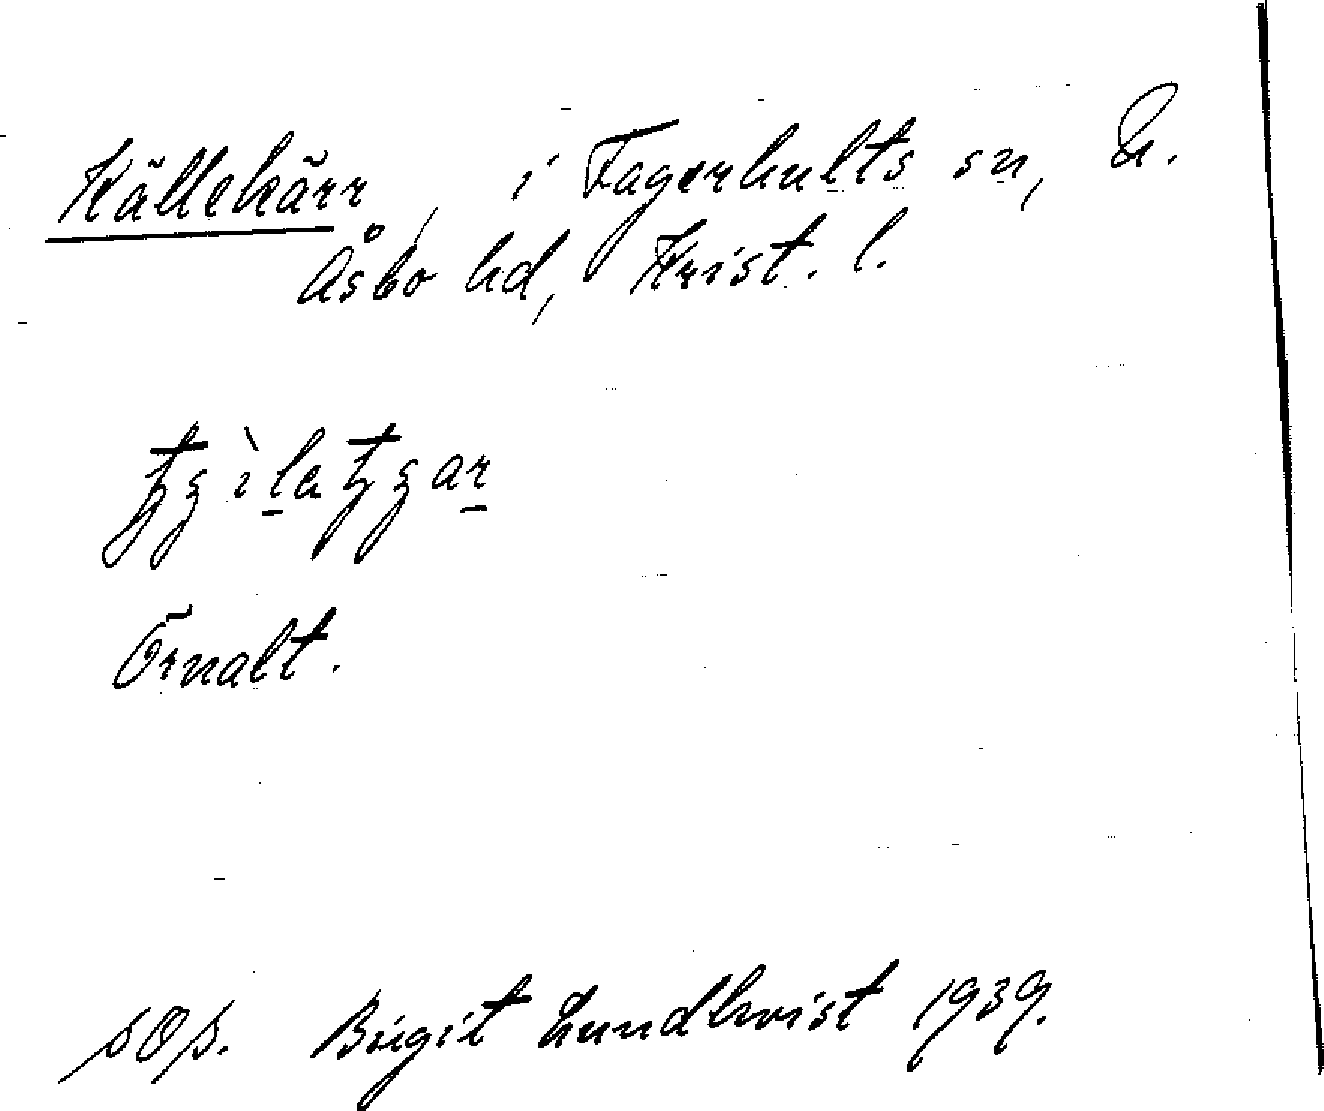 Källekärr, i Fagerhults sn, N.
Åsbo hd, Krist. l.
Örnalt.
Birgit Lundkvist 1939.